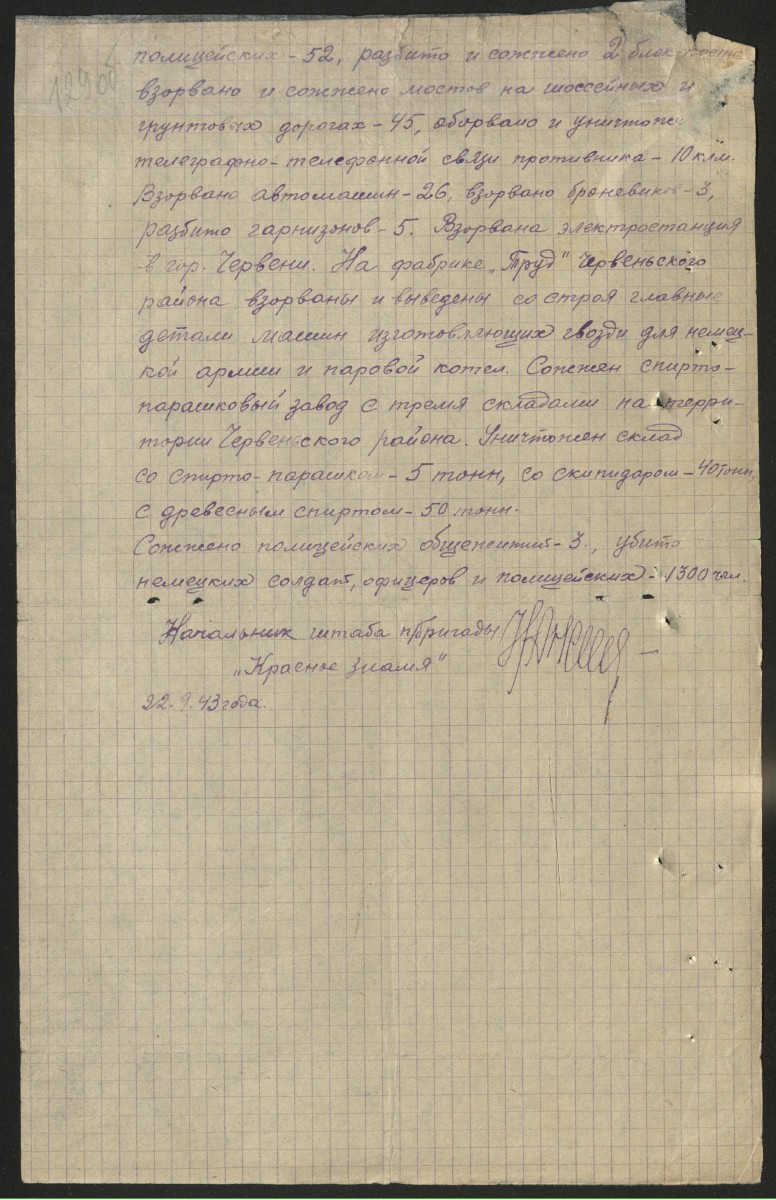 129об
полицейских - 52, разбито и сожжено 2 блок-
взорвано и сожжено мостов на шоссейных и
грунтовых дорогах - 45, оборвано и уничтоже
телеграфно-телефонной связи противника - 10 клм.
Взорвано автомашин - 26, взорвано броневиков - 3,
разбито гарнизонов - 5. Взорвана электростанция
в гор. Червени. На фабрике „Труд" Червеньского
района взорваны и выведены со строя главные
детали машин изготовляющих гвозди для немец-
кой армии и паровой котел. Сожжен спирто-
парашковый завод с тремя складами на терри-
тории Червеньского района. Уничтожен склад
со спирто-парашком - 5 тонн, со скипидаром - 40 тонн,
с древесным спиртом - 50 тонн.
Сожжено полицейских общежитий - 3., убито
немецких солдат, офицеров и полицейских - 1300 чел.
Начальник штаба п/бригады
„Красное знамя"
22.9.43 года.